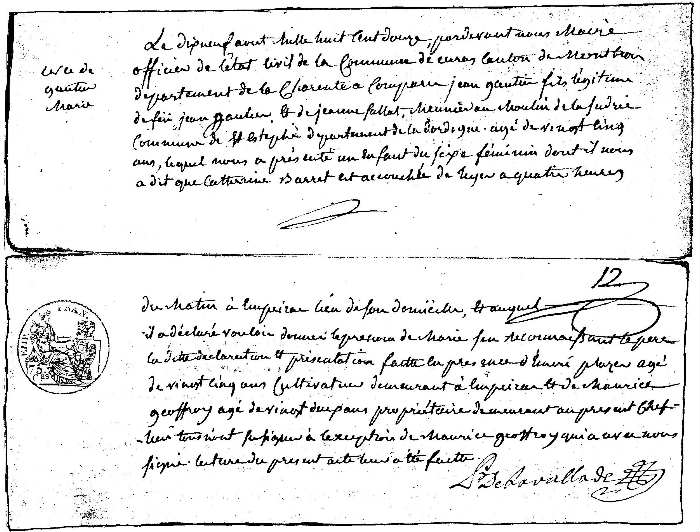 Le dixneuf avout Mille huit Cent douze, pardevant nous Maire
officier de l'état Civil de la Commune de euras Canton de Montbron
departement de la Charente a Comparu jean gautier fils légitime
de feu jean gautier, et de jeanne fallat, Meunier au Moulin de la
Commune de St Estephe departement de la Dordogne agé de vingt Cinq
ans, lequel nous a présenté un enfant du sexe féminin dont il nous
a dit que Catherine Barret est accouchée de hyer a quatre heures
de
gautier
Marie
12
du Matin à lieu de son domicille, et auquel
il a déclaré vouloir donner le prenom de Marie recounaissant le pere
la dite declaration et présentation faitte en presence d' agé
de vingt Cinq ans Cultivateur demeurant à et de Maurice
geoffroy agé de vingt ans propriétaire demeurant au present Chef-
lieu à lexception de Maurice geoffroy qui a avec nous
signé. lecture du present acte leur a été faitte
De Lavallade